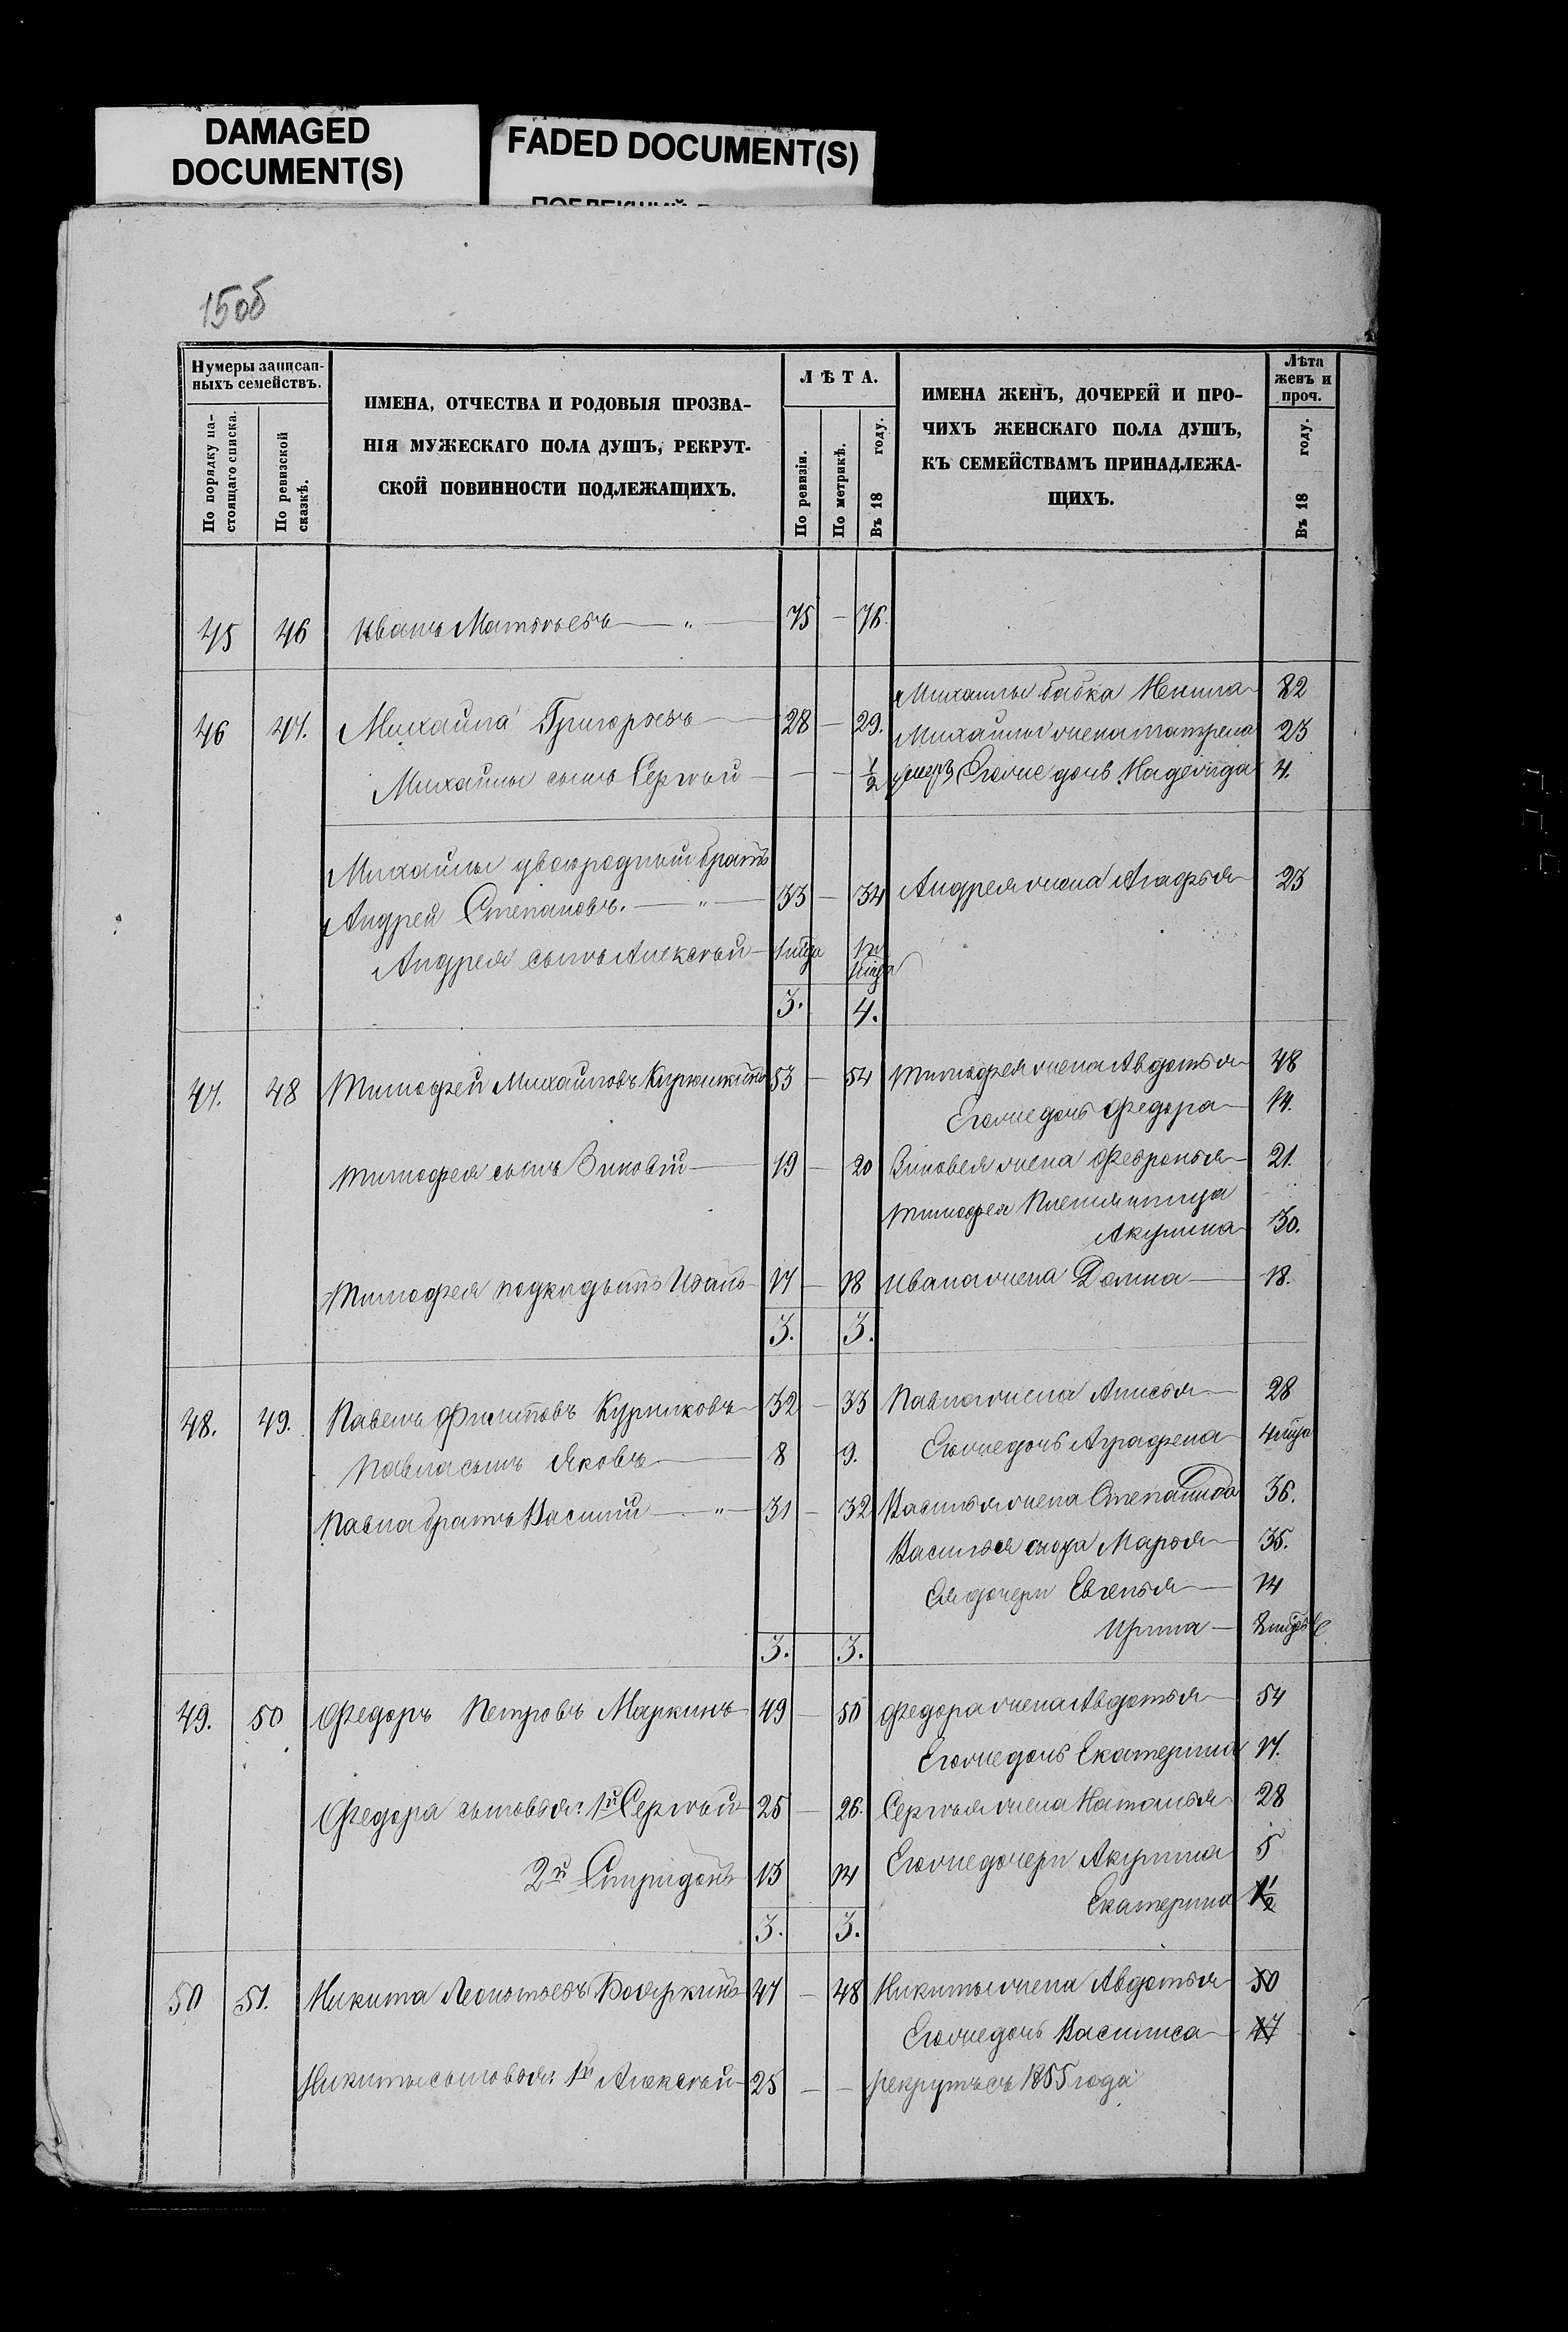 DAMAGED
DOCUMENT(S)
FADED DOCUMENT(S)
15об
Нумеры записан-
ныхъ семействъ.
По порядку на-
стоящаго списка.
По ревизской
сказкѣ.
ИМЕНА, ОТЧЕСТВА И РОДОВЫЯ ПРОЗВА-
НІЯ МУЖЕСКАГО ПОЛА ДУШЪ, РЕКРУТ-
СКОЙ ПОВИННОСТИ ПОДЛЕЖАЩИХЪ.
ЛѢТА.
По ревизіи.
По метрикѣ.
Въ 18 году.
ИМЕНА ЖЕНЪ, ДОЧЕРЕЙ И ПРО-
ЧИХЪ ЖЕНСКАГО ПОЛА ДУШЪ,
КЪ СЕМЕЙСТВАМЪ ПРИНАДЛЕЖА-
ЩИХЪ.
Лѣта
женъ и
проч.
Въ 18 году.
45 46 Иванъ Матвѣевъ — „ — 75 — 76.
Михайлы бабка Ненила 82
46 47. Михайла Григорьевъ 28 — 29. Михайлы жена 23
Михайлы сынъ Сергѣй — — 1/2 Егоже дочь Надежда 4.
Михайлы двоюродный братъ
Андрей Степановъ. — „ — 33 — 34 Андрея жена Агафья 23
Андрея сынъ Алексѣй
3. 4.
47. 48 Тимофей Михайловъ 53 — 54 Тимофея жена Авдотья 48
Егоже дочь Федора 14.
Тимофея сынъ Зиновій 19 — 20 Зиновея жена Февронья 21.
Тимофея племянница
Акулина 30.
Тимофея подкидышъ Иванъ 17 — 18 Ивана жена Домна 18.
3. 3.
48. 49. Павелъ Филиповъ Курников 32 — 33 Павла жена Анисья 28
Павла сынъ Яковъ 8 9. Егоже дочь Аграфена 4 мѣца
Павла братъ Василій — „ — 31 — 32 Василья жена Степанида 36.
Василья сноха Марья 35.
Ея дочери Евгенья 14
Ирина
3. 3.
49. 50 Федоръ Петровъ Маркинъ 49 — 50 Федора жена Авдотья 54
Егоже дочь Екатерина 17.
Федора сыновья: 1й Сергѣй 25 — 26. Сергѣя жена Наталья 28
2й Спиридонъ 13 14 Егоже дочери Акулина 5
Екатерина 1 1/2
3. 3.
50 51. Никита Леонтьевъ 47 — 48 Никиты жена Авдотья 50
Егоже дочь Василиса 17
Никиты сыновья: 1й Алексѣй 25 — — рекрутъ съ 1855 года